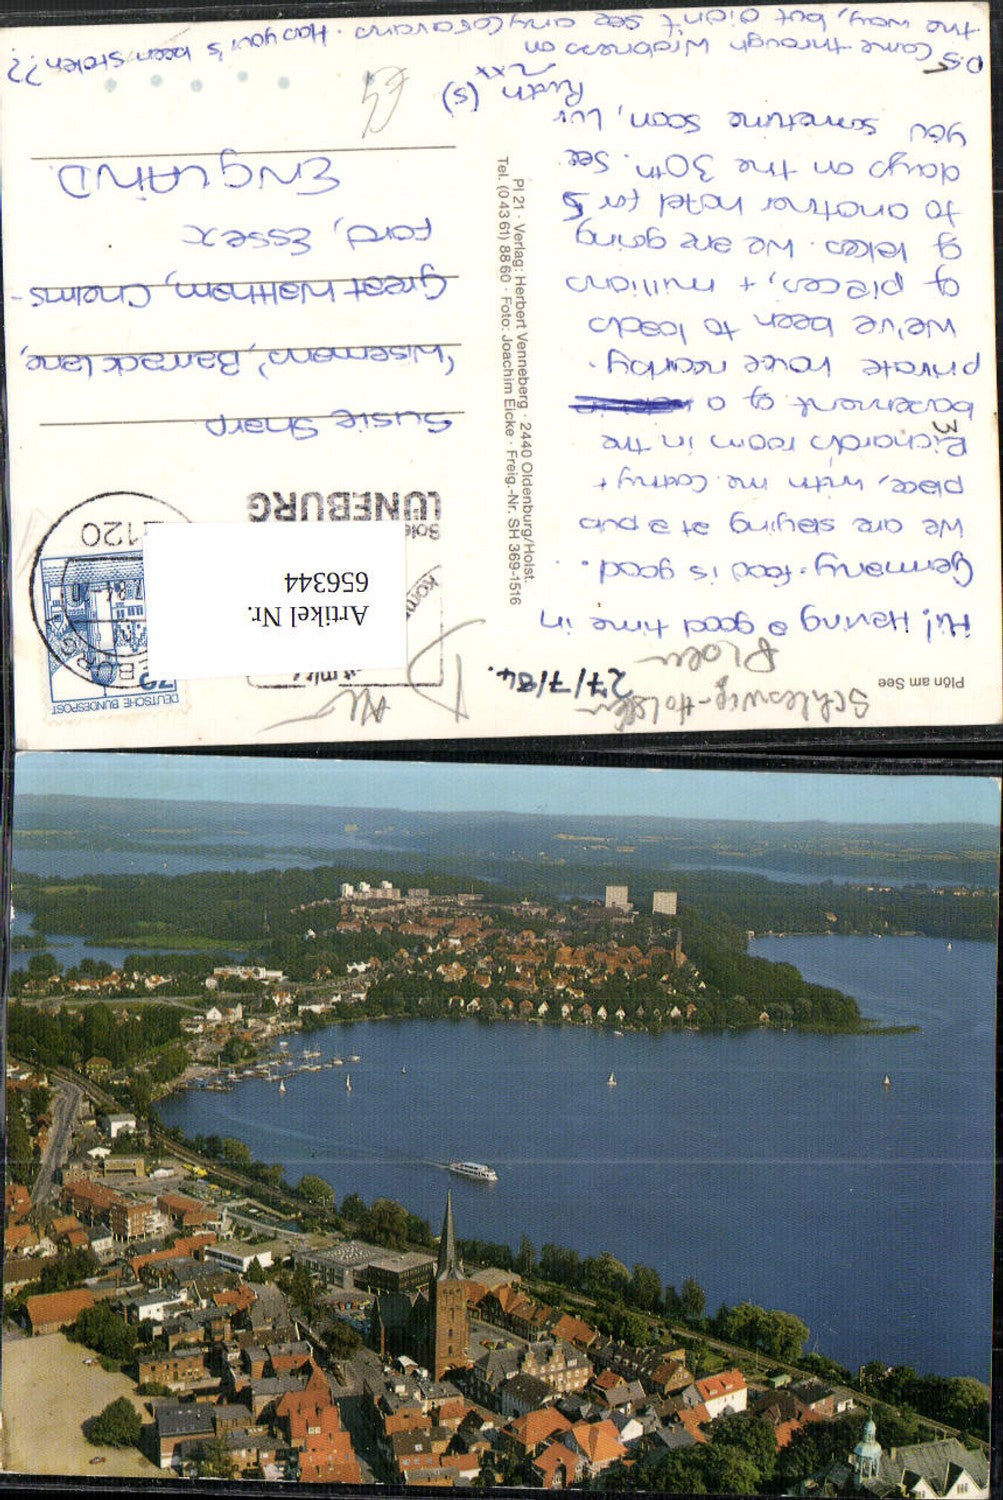 Plön am See
Schleswig-Holstein
Ploen
27/7/84.
Hi! Having a good time in
Germany. food is good.
We are staying at a pub
place, with me. Cathy +
Richard's room in the
basement of a
private house nearby.
We've been to loads
of places, + millions
of lakes. We are going
to another hotel for 5
days on the 30th. See
you sometime soon, luv
Ruth (s)
xx
P.S Came through Wrabness on
the way, but didn't see any caravans. Has your's been stolen??
Pl 21 · Verlag: Herbert Venneberg · 2440 Oldenburg/Holst.
Tel. (0 43 61) 88 60 · Foto: Joachim Eicke · Freig.-Nr. SH 369-1516
DEUTSCHE BUNDESPOST
2120
LÜNEBURG
Artikel Nr.
656344
Susie Sharp
'Wisemans', Barrack Lane,
Great Waltham, Chelms-
ford, Essex
ENGLAND